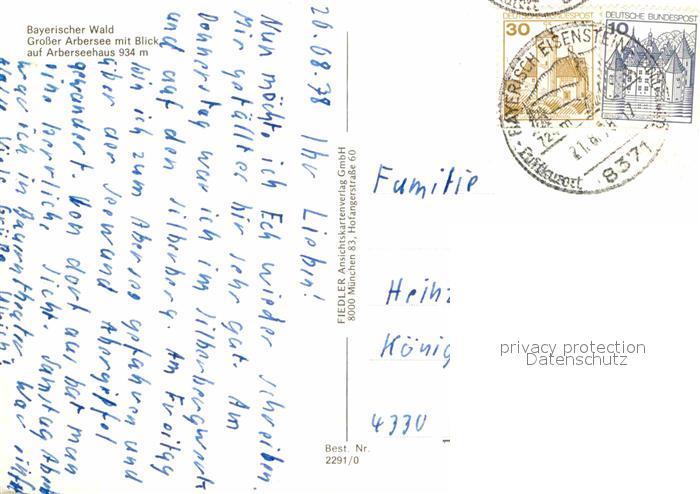 Bayerischer Wald
Großer Arbersee mit Blick
auf Arberseehaus 934 m
20.08.78
Ihr Lieben!
Nun möchte ich Euch wieder schreiben.
Mir gefällt er hir sehr gut. Am
Donnerstag war ich im Silberbergwerk
und auf den Silberberg. Am Freitag
bin ich zum Abersee gefahren und
über der Seewand Abergipfel
gewandert. Von dort aus hat man
eine herrliche Sicht. Samstag Abend
war ich in Bauerntheater war
Viele Grüße
FIEDLER Ansichtskartenverlag GmbH
8000 München 83, Hofangerstraße 60
Best. Nr.
2291/0
DEUTSCHE BUNDESPOST
30
DEUTSCHE BUNDESPOST
10
BAYERISCH EISENSTEIN
21.8.78
8371
Luftkurort
Familie
Heinz
König
4330
privacy protection
Datenschutz